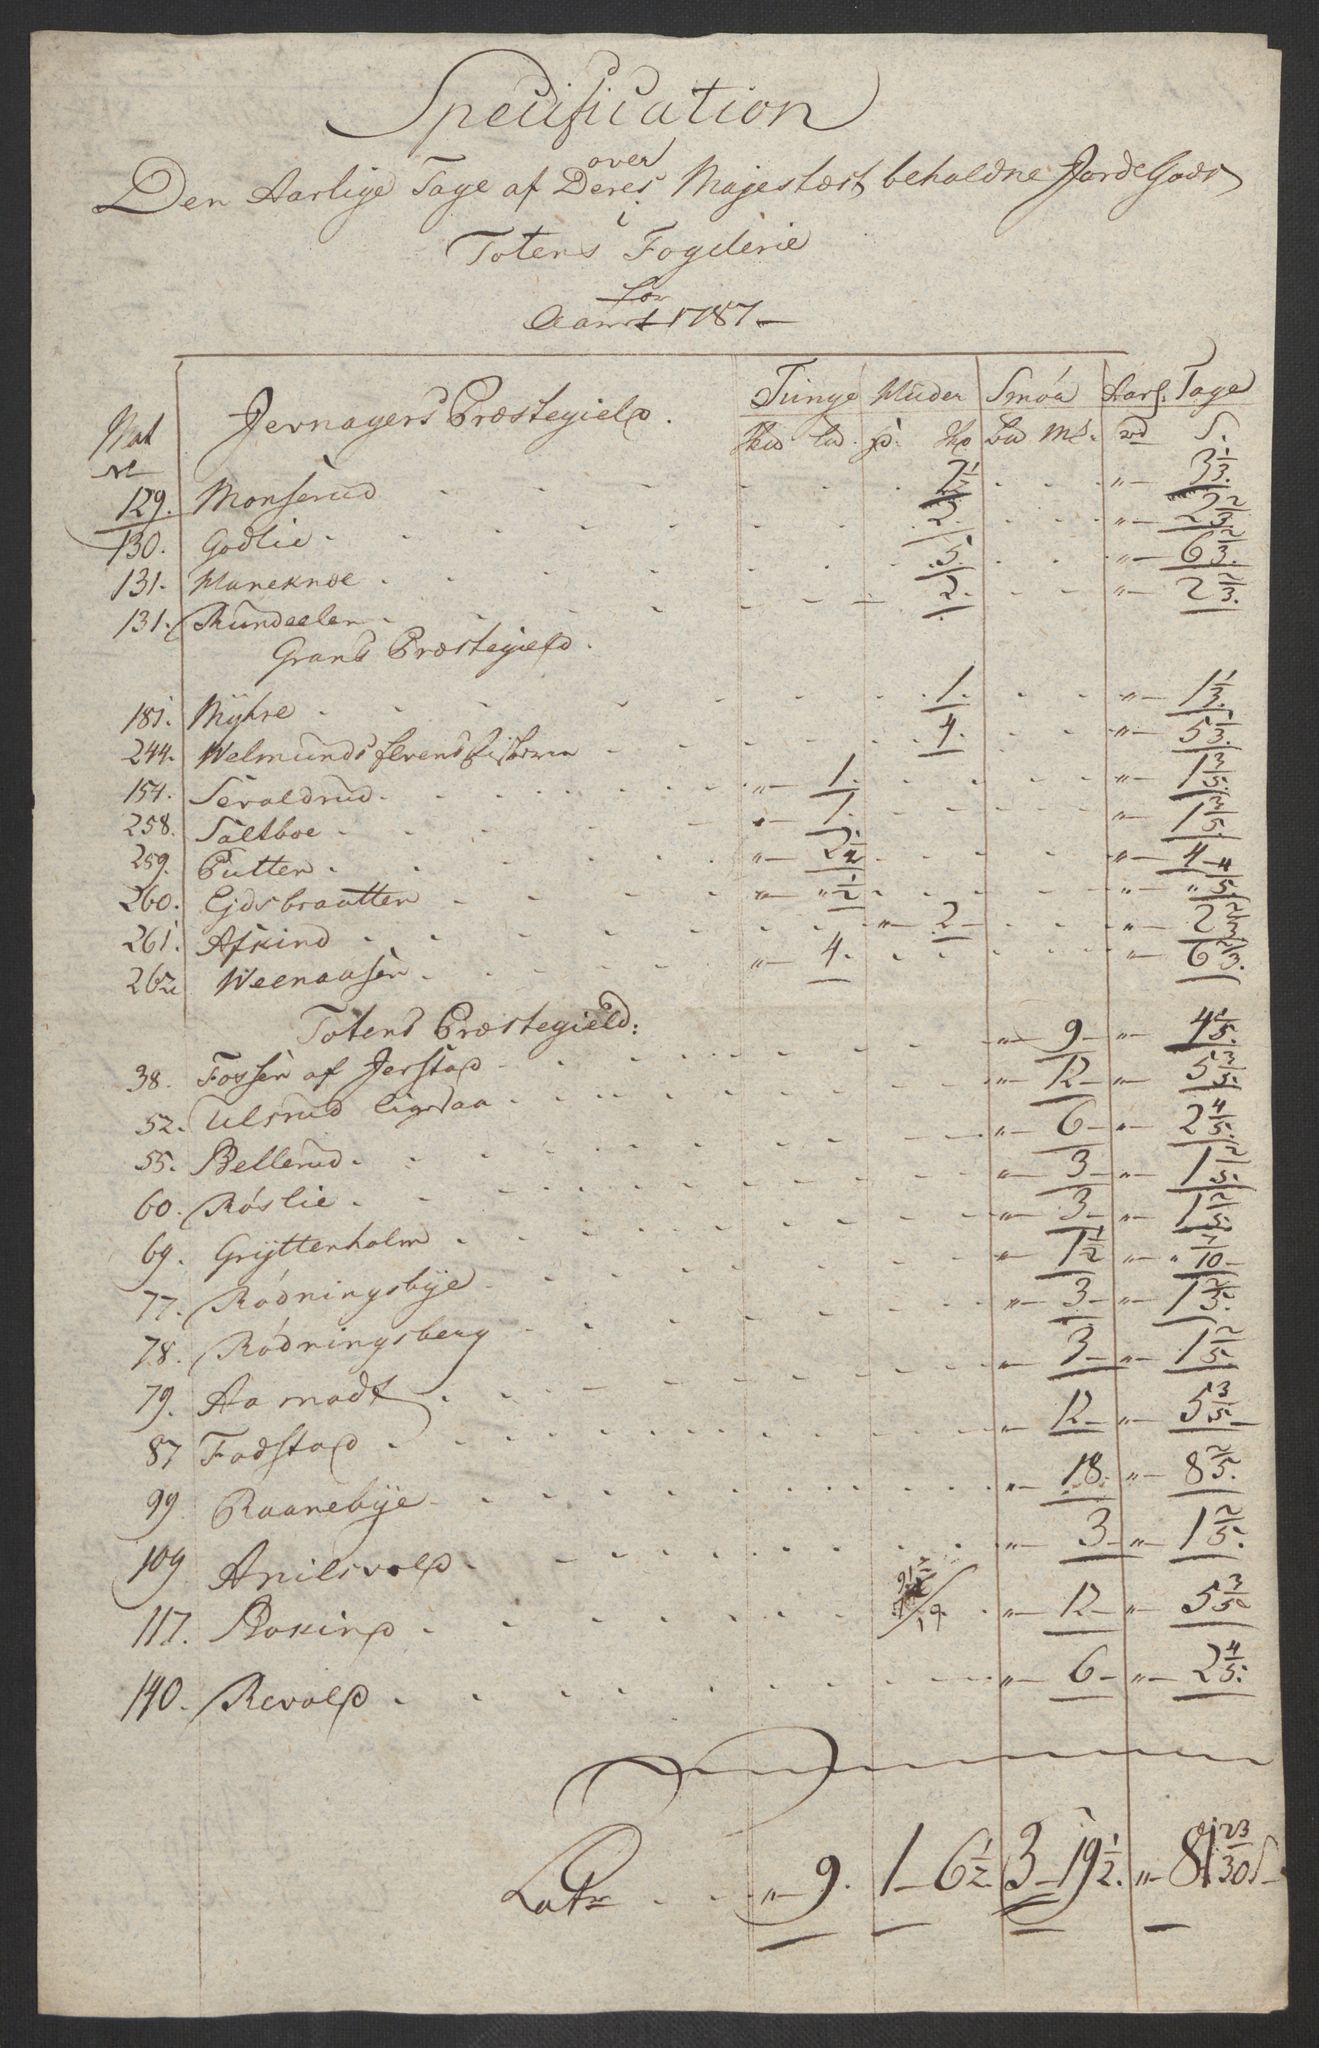 Specification
over
Den Aarlige Tage af Deres Majestæts beholdne JordeGods
i
Totens Fogderie
for
Aaret 1787
Mat Nr Jevnagers Præstegield. Tunge Huder Smøer Aarl. Tage
Skd Ld ß. Skd Ld Mk. rd S.
129. Monserud 2 1/2 " 3 1/3.
130. Godlie 2. " 2 2/3
131. Maneknoe 5 " 6 2/3.
131. Rundeelen 2. " 2 2/3.
Grans Præstegield.
181. Mÿhre 1. " 1 1/3.
244. Welmunds 4. " 5 1/3.
154. Sevaldrud " 1. " 1 3/5.
258. Saltboe " 1. " 1 3/5.
259. Putten " 2 1/2 " 4
260. Ejdsbraatten " " 1/2 " " 4/5.
261. Askind " 2 " 2 2/3
262. Weenaasen " 4. " 6 2/3.
Totens Præstegield:
38. Fossen af Jerstad " 9 " 4 1/5.
52. Ulsrud " 12 " 5 3/5.
55. Bellerud " 6 " 2 4/5.
60. Røslie " 3 " 1 2/5.
69. Grÿttenholm " 3 " 1 2/5.
77. Rødningsbÿe " 1 1/2 " " 7/10
78. Rødningsberg " 3 " 1 2/5.
79. Aamodt " 3 " 1 2/5.
87 Fodstad " 12 " 5 3/5.
99 Raanebÿe " 18. " 8 2/5.
109 Anilsvold " 3 " 1 2/5.
117. Boxind " 12 " 5 3/5
140. Revold " 6 " 2 4/5.
Latr " 9. 1 6 1/2. 3 19 1/2. " 81 23/30 S